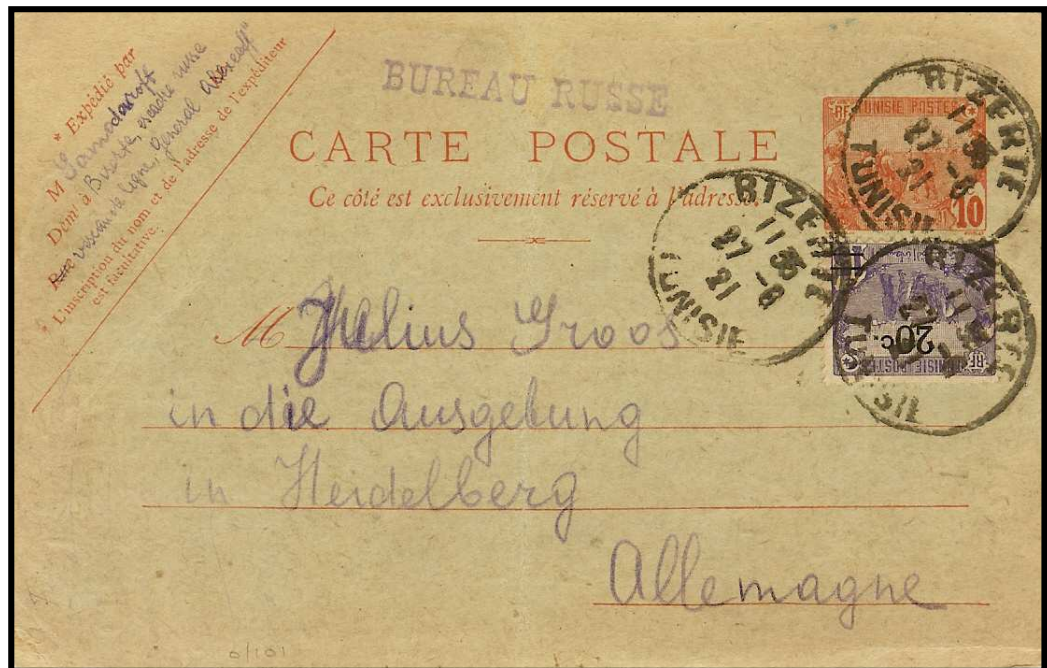 * Expédié par
M Samodaroff
Dom! à Bizerte, escadre russe
Rue vaisseau de ligne, General Alexeeff"
* L'inscription du nom et de l'adresse de l'expéditeur
est facultative.
BUREAU RUSSE
CARTE POSTALE
Ce côté est exclusivement réservé à l'adresse.
RF TUNISIE POSTES
10
BIZERTE
11 35
27 -6
21
TUNISIE
BIZERTE
11 35
27 -6
21
TUNISIE
20c.
RF TUNISIE POSTES
BIZERTE
11 35
27
TUNISIE
M Julius Groos
in die Ausgebung
in Heidelberg
Allemagne
0/101